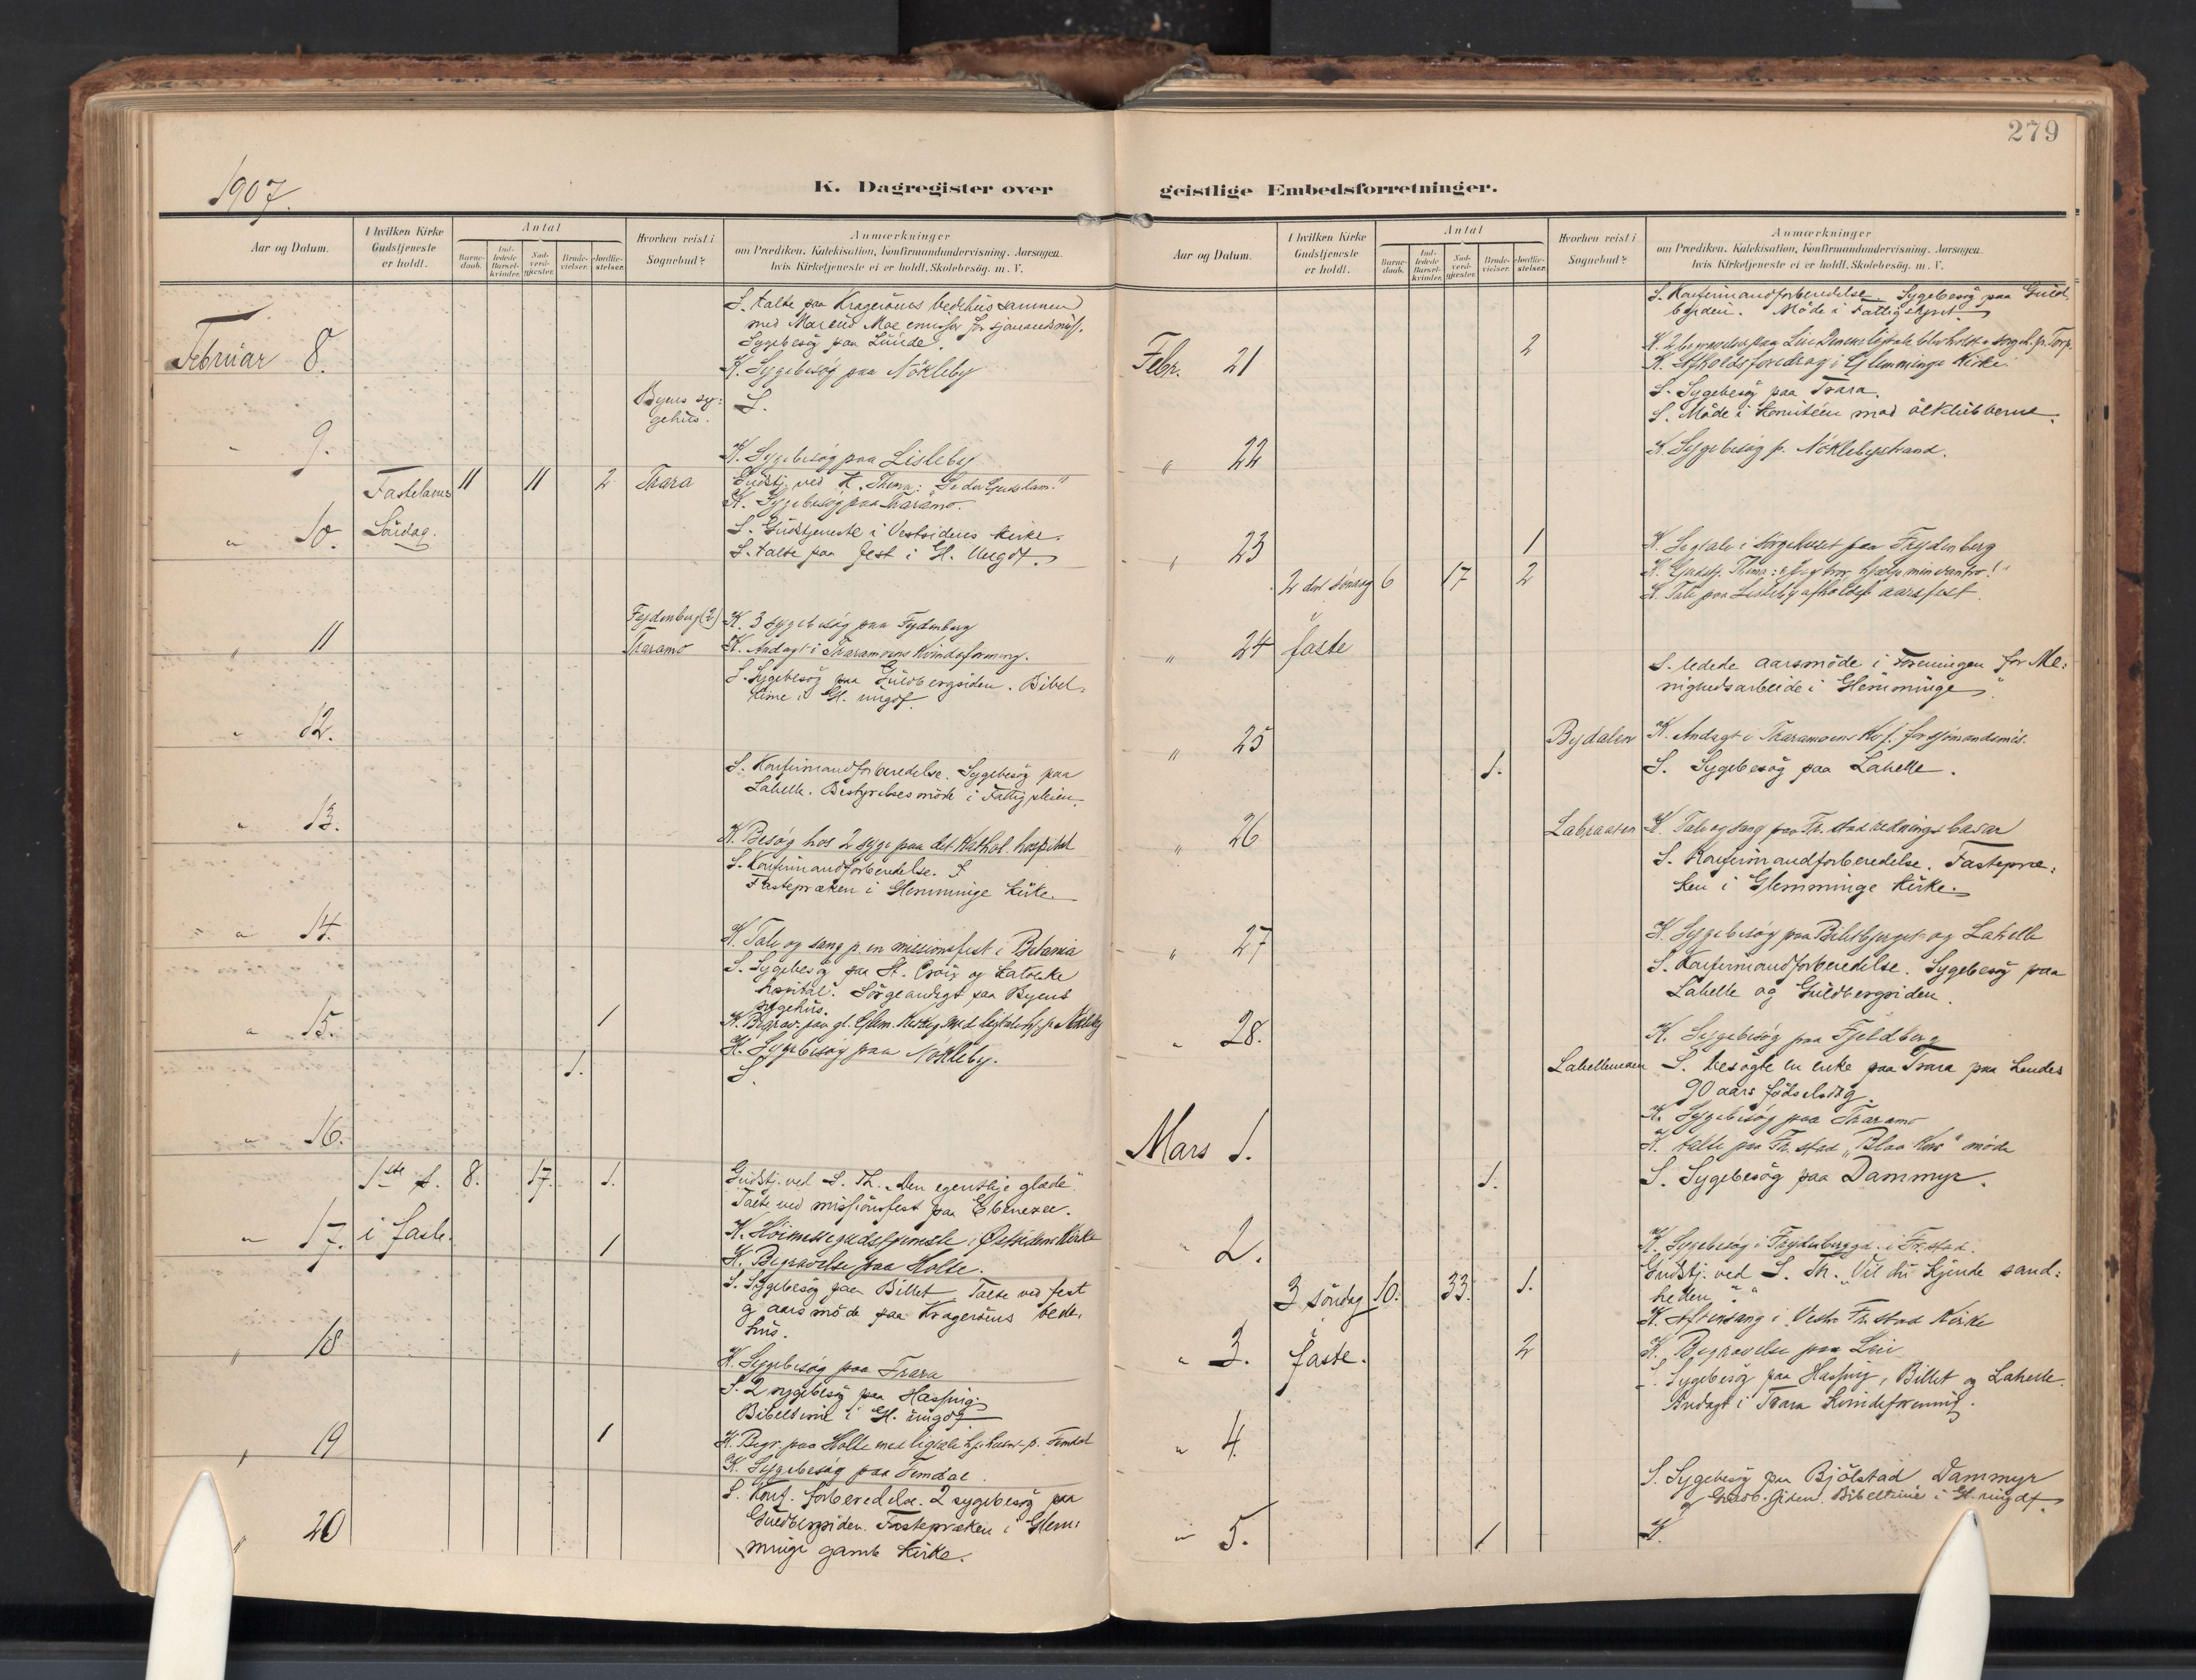 279
1907.
K. Dagregister over
geistlige Embedsforretninger.
Aar og Datum.
I hvilken Kirke
Gudstjeneste
er holdt.
Antal
Barne-
daab.
Ind-
ledede
Barsel-
kvinder.
Nad-
verd-
gjæster.
Brude-
vielser.
Jordfæ-
stelser.
Hvorhen reist i
Sognebud?
Anmærkninger
om Prædiken, Katekisation, Konfirmandundervisning, Aarsagen,
hvis Kirketjeneste ei er holdt, Skolebesøg, m. V.
S. talte paa Kragerøens bedehus sammen
med Marius Moe
Sygebesøg paa Lunde.
Februar 8.
K. Sygebesøg paa Nökleby
Byens sy-
gehus.
S.
" 9.
K. Sygebesøg paa Lisleby
Fastelavns 11 11 2 Trara Gudstj. ved K. Thema: Se det Guds lam!"
K. Sygebesøg paa Traramo.
" 10. Søndag.
S. Gudstjeneste i Vestsidens kirke.
S. talte paa fest i Gl. Ungdf.
Fydenberg (2) K. 3 sygebesøg paa Fydenberg
" 11 Traramo K. Andagt i Traramoens Kvindeforening.
S. Sygebesøg paa Guldbergsiden. Bibel-
time i Gl. ungdf.
" 12.
S. Konfirmandforberedelse. Sygebesøg paa
Lahelle. Bestyrelsesmöde i Fattigpleien.
" 13.
K. Besøg hos 2 syge paa det Kathol. hospital
S. Konfirmandforberedelse. S
Fastepræken i Glemminge kirke.
" 14.
K. Tale og sang p. en missionsfest i Betania
S. Sygebesøg paa St. Croix og katolske
hospital. Sörgeandagt paa Byens
sygehus.
" 15. 1 K. Begrav. paa gl. Glem. Kirkeg. med ligtale p. Nökleby
K. Sygebesøg paa Nökleby.
1. S
" 16.
1ste s. 8. 17. 1. Gudstj. ved S. Th. "Den egentlige glæde".
Talte ved missionsfest paa Ebenezer.
" 17. i faste. K. Höimessegudstjeneste i Østsidens Kirke
1 K. Begravelse paa Holte.
S. Sygebesøg paa Billet. Talte ved fest
og aarsmöde paa Kragerøens bede-
hus.
" 18
K. Sygebesøg paa Trara
S. 2 sygebesøg paa Hassing
Bibeltime i Gl. ungdf.
" 19 1 K. Begr. paa Holte med ligtale p. Femdal
K. Sygebesøg paa Femdal.
S. Konf. forberedelse. 2 sygebesøg paa
" 20 Guldbergsiden. Fastepræken i Glem-
minge gamle kirke.
Aar og Datum.
I hvilken Kirke
Gudstjeneste
er holdt.
Antal
Barne-
daab.
Ind-
ledede
Barsel-
kvinder.
Nad-
verd-
gjæster.
Brude-
vielser.
Jordfæ-
stelser.
Hvorhen reist i
Sognebud?
Anmærkninger
om Prædiken, Katekisation, Konfirmandundervisning, Aarsagen,
hvis Kirketjeneste ei er holdt, Skolebesög, m. V.
S. Konfirmandforberedelse. Sygebesøg paa Guld-
bergsiden. Möde i Fattigstyret
2 K. 2 begravelser paa Leie
Febr. 21 K. Afholdsforedrag i Glemminge Kirke.
S. Sygebesøg paa Trara.
S. Möde i komitéen mod ölklubberne.
" 22 K. Sygebesøg p. Nöklebystrand.
" 23 1 K. Ligtale i sörgehuset paa Frydenberg
2 den søndag 6 17 2 K. Gudstj. Thema: "Jeg tror, hjælp min vantro!"
K. Tale paa Lisleby afholdsf. aarsfest.
i
" 24 faste
S. ledede aarsmöde i Foreningen for Me-
nighedsarbeide i Glemminge.
" 25 Bydalen K. Andagt i Traramoens Kvf. for sjömandsmis.
1. S. Sygebesøg paa Lahelle.
" 26 Labraaten K. Tale og sang paa Fr.stad redningsbasar
S. Konfirmandforberedelse. Fastepræ-
ken i Glemminge kirke.
" 27 K. Sygebesøg paa Biletbjerget og Lahelle
S. Konfirmandforberedelse. Sygebesøg paa
Lahelle og Guldbergsiden.
" 28. K. Sygebesøg paa Fjeldberg
Lahellemoen S. besøgte en enke paa Trara paa hendes
90 aars födselsdag.
K. Sygebesøg paa Traramo
Mars 1. K. talte paa Fr.stad "Blaa Kors" möde
1. S. Sygebesøg paa Dammyr.
" 2. K. Sygebesøg i Frydenberggd. i Fr.stad.
3 söndag 10. 33. 1. Gudstj. ved S. Th. "Vil du kjende sand-
heden"
i
K. Aftensang i Vestre Fr.stad Kirke
" 3. faste. 2 K. Begravelse paa Leie
S. Sygebesøg paa Hassing, Billet og Lahelle.
Andagt i Trara Kvindeforening.
" 4.
S. Sygebesøg paa Bjölstad, Dammyr
og Guldb.siden. Bibeltime i Gl. ungdf.
" 5. 1 K.